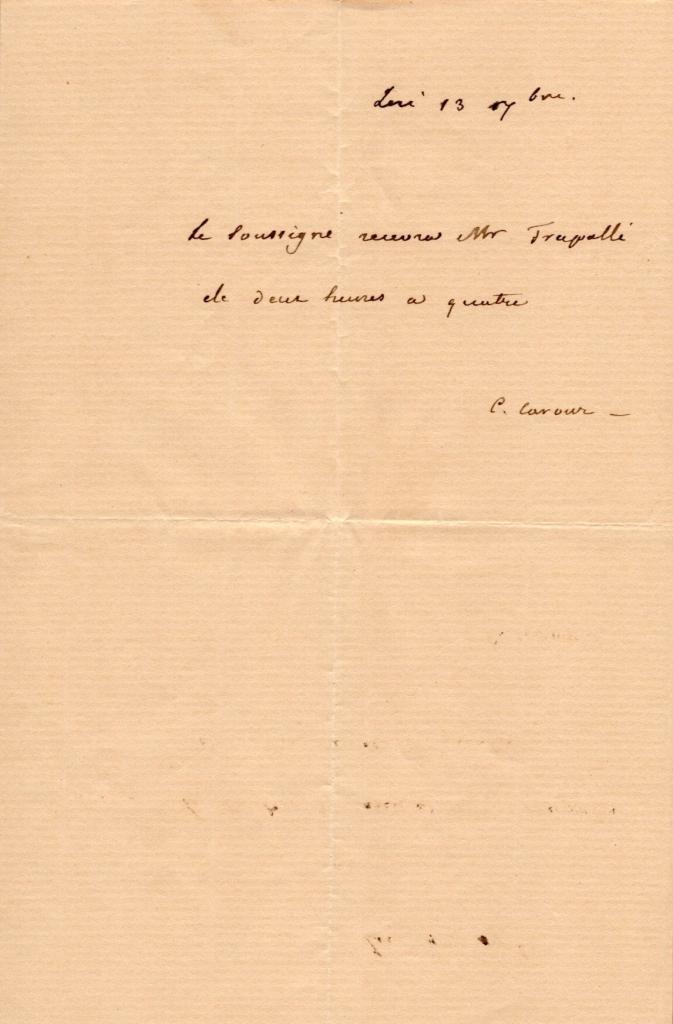 Leri 13 7bre.
Le soussigné recevra Mr Trapolli
de deux heures a quatre
C. Cavour